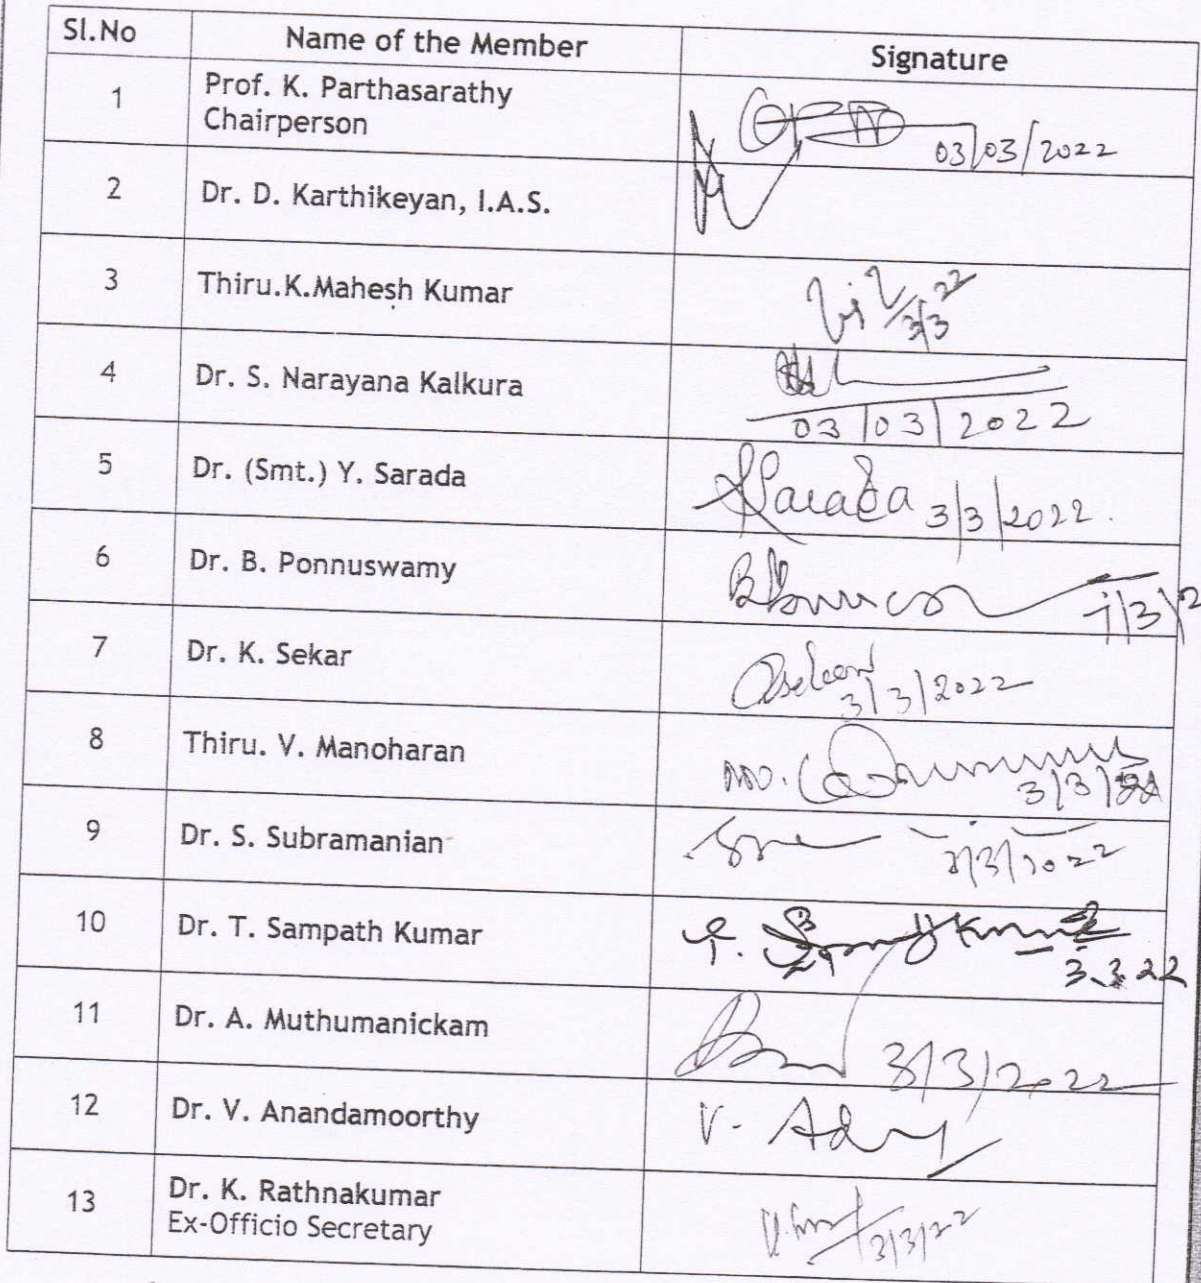 Sl.No Name of the Member Signature
1 Prof. K. Parthasarathy
Chairperson
03/03/2022
2 Dr. D. Karthikeyan, I.A.S.
3 Thiru.K.Mahesh Kumar
3/3 22
4 Dr. S. Narayana Kalkura
03/03/2022
5 Dr. (Smt.) Y. Sarada
YSarada 3/3/2022.
6 Dr. B. Ponnuswamy
7 Dr. K. Sekar
3/3/2022
8 Thiru. V. Manoharan
3/3/22
9 Dr. S. Subramanian
3/3/2022
10 Dr. T. Sampath Kumar
T. Sampath Kumar
3.3.22
11 Dr. A. Muthumanickam
3/3/2022
12 Dr. V. Anandamoorthy
13 Dr. K. Rathnakumar
Ex-Officio Secretary
3/3/22